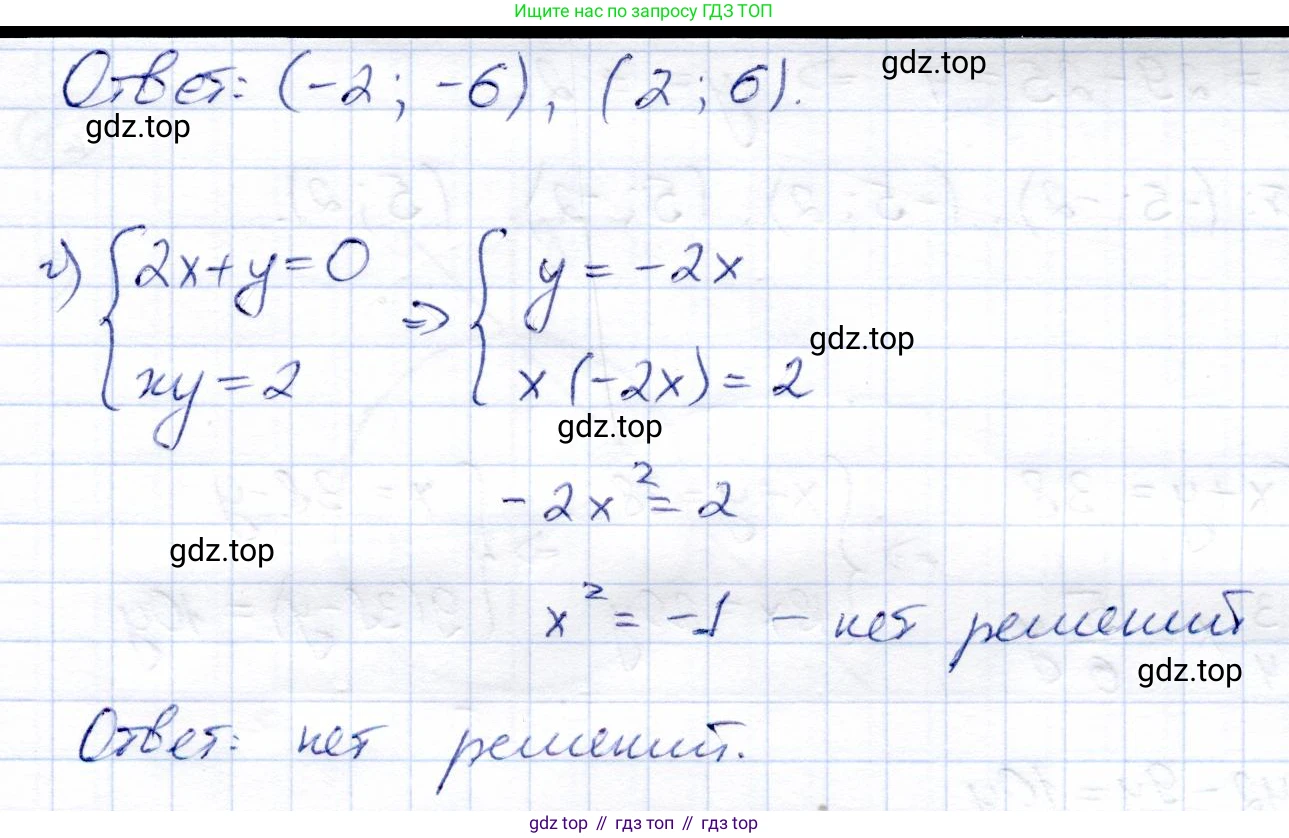 Ищите нас по запросу ГДЗ ТОП
Ответ: (-2; -6), (2; 6).
gdz.top
gdz.top
г) { 2x+y=0 ⇒ { y = -2x
gdz.top
xy = 2 x(-2x) = 2
gdz.top
-2x² = 2
gdz.top
x² = -1 – нет решений
gdz.top
Ответ: нет решений.
gdz top // гдз топ // гдз top